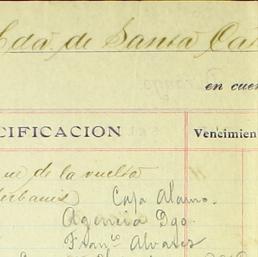 Cda. de Santa Ca
en cuen
CIFICACION Vencimien
ue de la vuelta
Caja Alamo.
Agencia Dgo.
Franco Alvarez